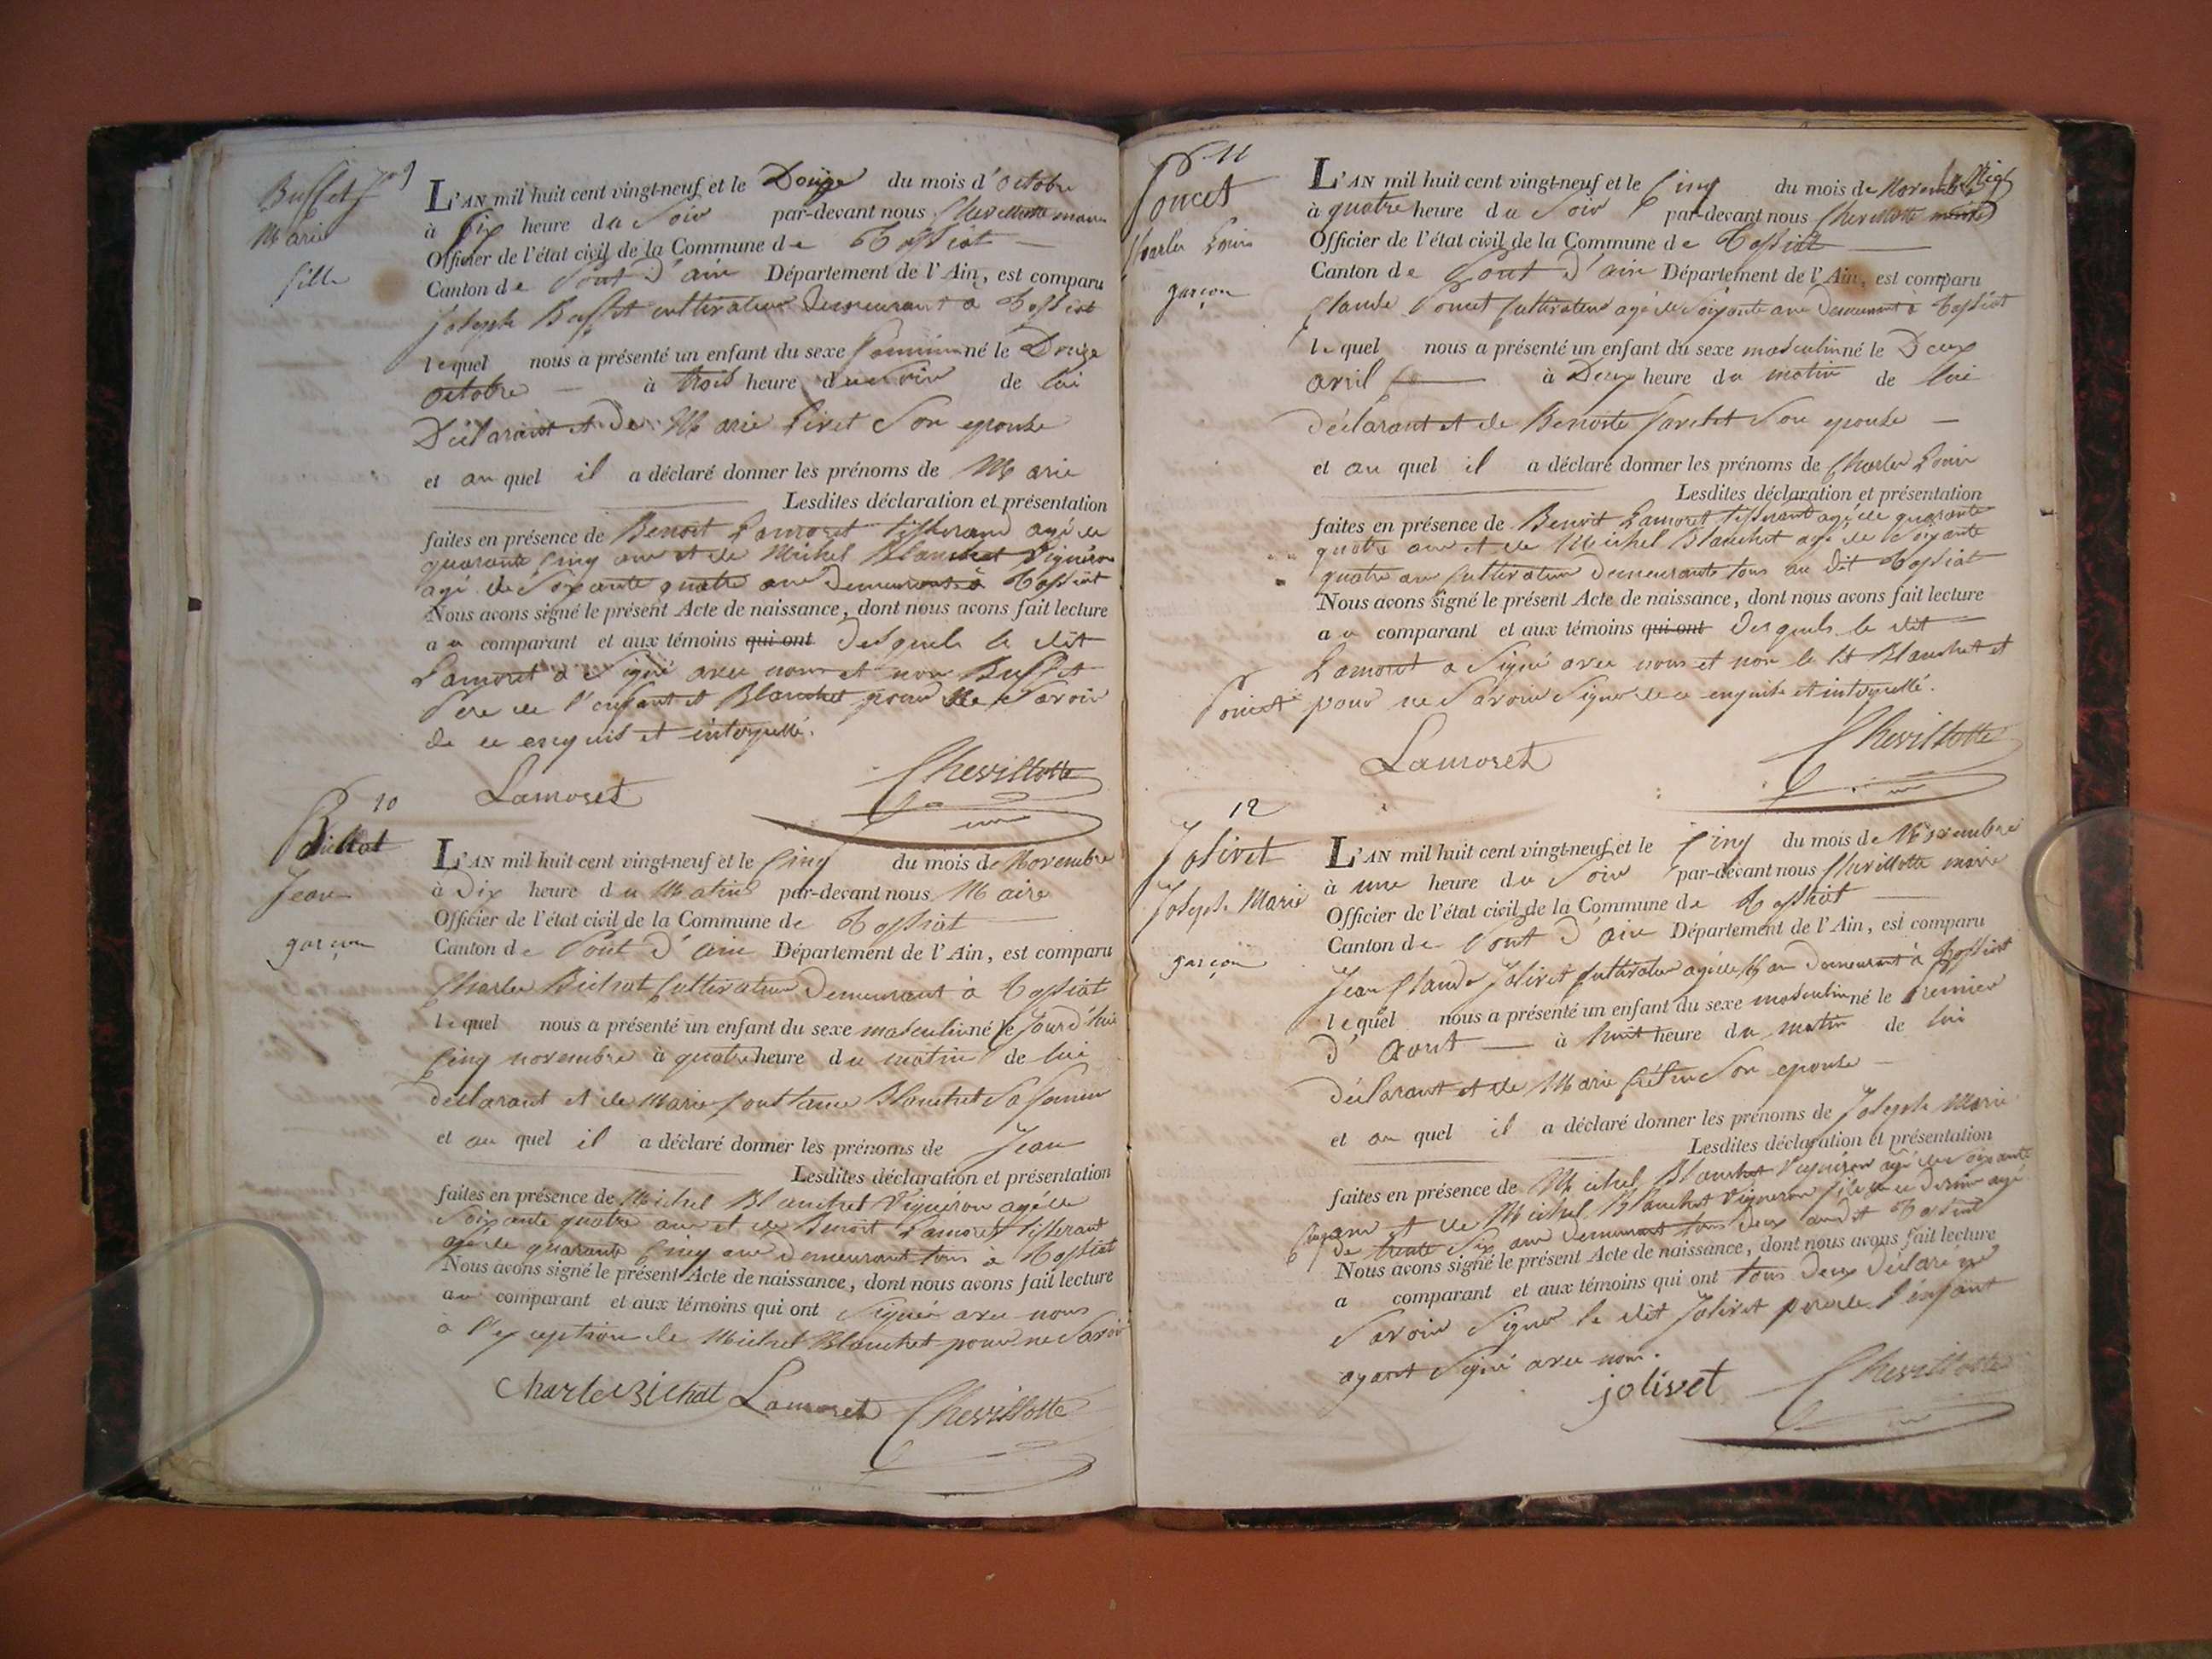 Buffet n.o 9
Marie
fille
L'AN mil huit cent vingt-neuf et le Douze du mois d'octobre
à six heure du Soir par-devant nous Chevillotte maire
Officier de l'état civil de la Commune de Tossiat
Canton de Pont d'ain Département de l'Ain, est comparu
Joseph Buffet cultivateur Demeurant à Tossiat
lequel nous a présenté un enfant du sexe feminin né le Douze
octobre à trois heure du Soir de lui
Déclarant et de Marie Piret Son epouse
et au quel il a déclaré donner les prénoms de Marie
Lesdites déclaration et présentation
faites en présence de Benoit Lamoret tisserand agé de
quarante Cinq ans et de Michel Blanchet Vigneron
agé de Soixante quatre ans Demeurants à Tossiat
Nous avons signé le présent Acte de naissance, dont nous avons fait lecture
au comparant et aux témoins qui ont Desquels le dit
Lamoret a Signé avec nous et non Buffet
Pere de l'enfant et Blanchet pour ne Savoir
de ce enquis et interpellé.
Lamoret Chevillotte
10
Bichat
Jean
garçon
L'AN mil huit cent vingt-neuf et le Cinq du mois de Novembre
à Dix heure du Matin par-devant nous Maire
Officier de l'état civil de la Commune de Tossiat
Canton de Pont d'ain Département de l'Ain, est comparu
Charles Bichat Cultivateur Demeurant à Tossiat
lequel nous a présenté un enfant du sexe masculin né le Jourd'hui
Cinq novembre à quatre heure du matin de lui
déclarant et de Marie Constance Blanchet Sa femme
et au quel il a déclaré donner les prénoms de Jean
Lesdites déclaration et présentation
faites en présence de Michel Blanchet Vigneron agé de
Soixante quatre ans et de Benoit Lamoret tisserant
agé de quarante Cinq ans Demeurant tous à Tossiat
Nous avons signé le présent Acte de naissance, dont nous avons fait lecture
au comparant et aux témoins qui ont Signé avec nous
à l'exception de Michel Blanchet pour ne Savoir
Charle Bichat Lamoret Chevillotte
11
Poncet
Charles Louis
garçon
L'AN mil huit cent vingt-neuf et le Cinq du mois de Novembre
à quatre heure du Soir par-devant nous Chevillotte maire
Officier de l'état civil de la Commune de Tossiat
Canton de Pont d'ain Département de l'Ain, est comparu
Claude Poncet Cultivateur agé de Soixante ans Demeurant à Tossiat
lequel nous a présenté un enfant du sexe masculin né le Deux
avril à Deux heure du matin de lui
déclarant et de Benoite Son epouse
et au quel il a déclaré donner les prénoms de Charles Louis
Lesdites déclaration et présentation
faites en présence de Benoit Lamoret tisserant agé de quarante
quatre ans et de Michel Blanchet agé de Soixante
quatre ans Cultivateur demeurants tous au dit Tossiat
Nous avons signé le présent Acte de naissance, dont nous avons fait lecture
au comparant et aux témoins qui ont Desquels le dit
Lamoret a Signé avec nous et non le dit Blanchet et
Poncet pour ne Savoir Signer de ce enquis et interpellé.
Lamoret Chevillotte
12
Jolivet
Joseph Marie
garçon
L'AN mil huit cent vingt-neuf et le Cinq du mois de Novembre
à une heure du Soir par-devant nous Chevillotte maire
Officier de l'état civil de la Commune de Tossiat
Canton de Pont d'ain Département de l'Ain, est comparu
Jean Claude Jolivet Cultivateur agé de ans Demeurant à Tossiat
lequel nous a présenté un enfant du sexe masculin né le Premier
d'aout à huit heure du matin de lui
déclarant et de Marie Son epouse
et au quel il a déclaré donner les prénoms de Joseph Marie
Lesdites déclaration et présentation
faites en présence de Michel Blanchet Vigneron agé de Soixante
Cinq ans et de Michel Blanchet Vigneron fils de ce dernier agé
de trente Six ans demeurant tous deux audit Tossiat
Nous avons signé le présent Acte de naissance, dont nous avons fait lecture
a comparant et aux témoins qui ont tous Deux déclaré ne
Savoir Signer le dit Jolivet pere de l'enfant
ayant Signé avec nous.
jolivet Chevillotte